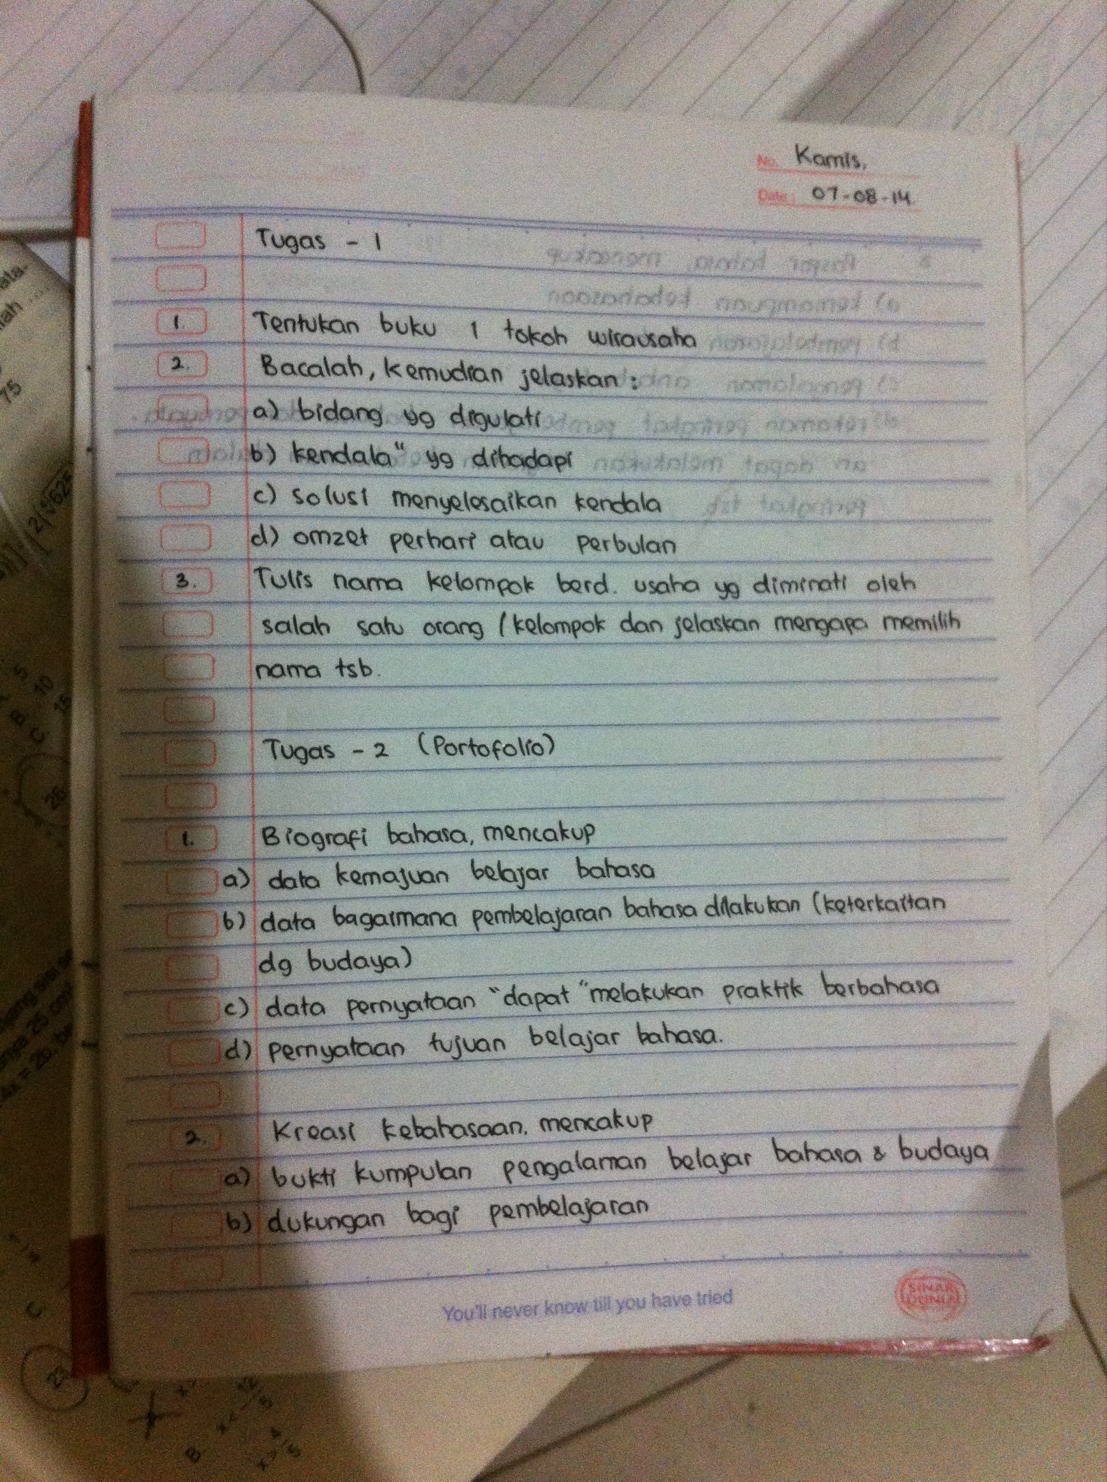 No. Kamis,
Date: 07-08-14
Tugas - 1
1. Tentukan buku 1 tokoh wirausaha
2. Bacalah, kemudian jelaskan:
a) bidang yg digulati
b) kendala" yg dihadapi
c) solusi menyelesaikan kendala
d) omzet perhari atau perbulan
3. Tulis nama kelompok berd. usaha yg diminati oleh
salah satu orang / kelompok dan jelaskan mengapa memilih
nama tsb.
Tugas - 2 (Portofolio)
1. Biografi bahasa, mencakup
a) data kemajuan belajar bahasa
b) data bagaimana pembelajaran bahasa dilakukan (keterkaitan
dg budaya)
c) data pernyataan "dapat" melakukan praktik berbahasa
d) pernyataan tujuan belajar bahasa.
2. Kreasi kebahasaan, mencakup
a) bukti kumpulan pengalaman belajar bahasa & budaya
b) dukungan bagi pembelajaran
You'll never know till you have tried
SINAR
DUNIA